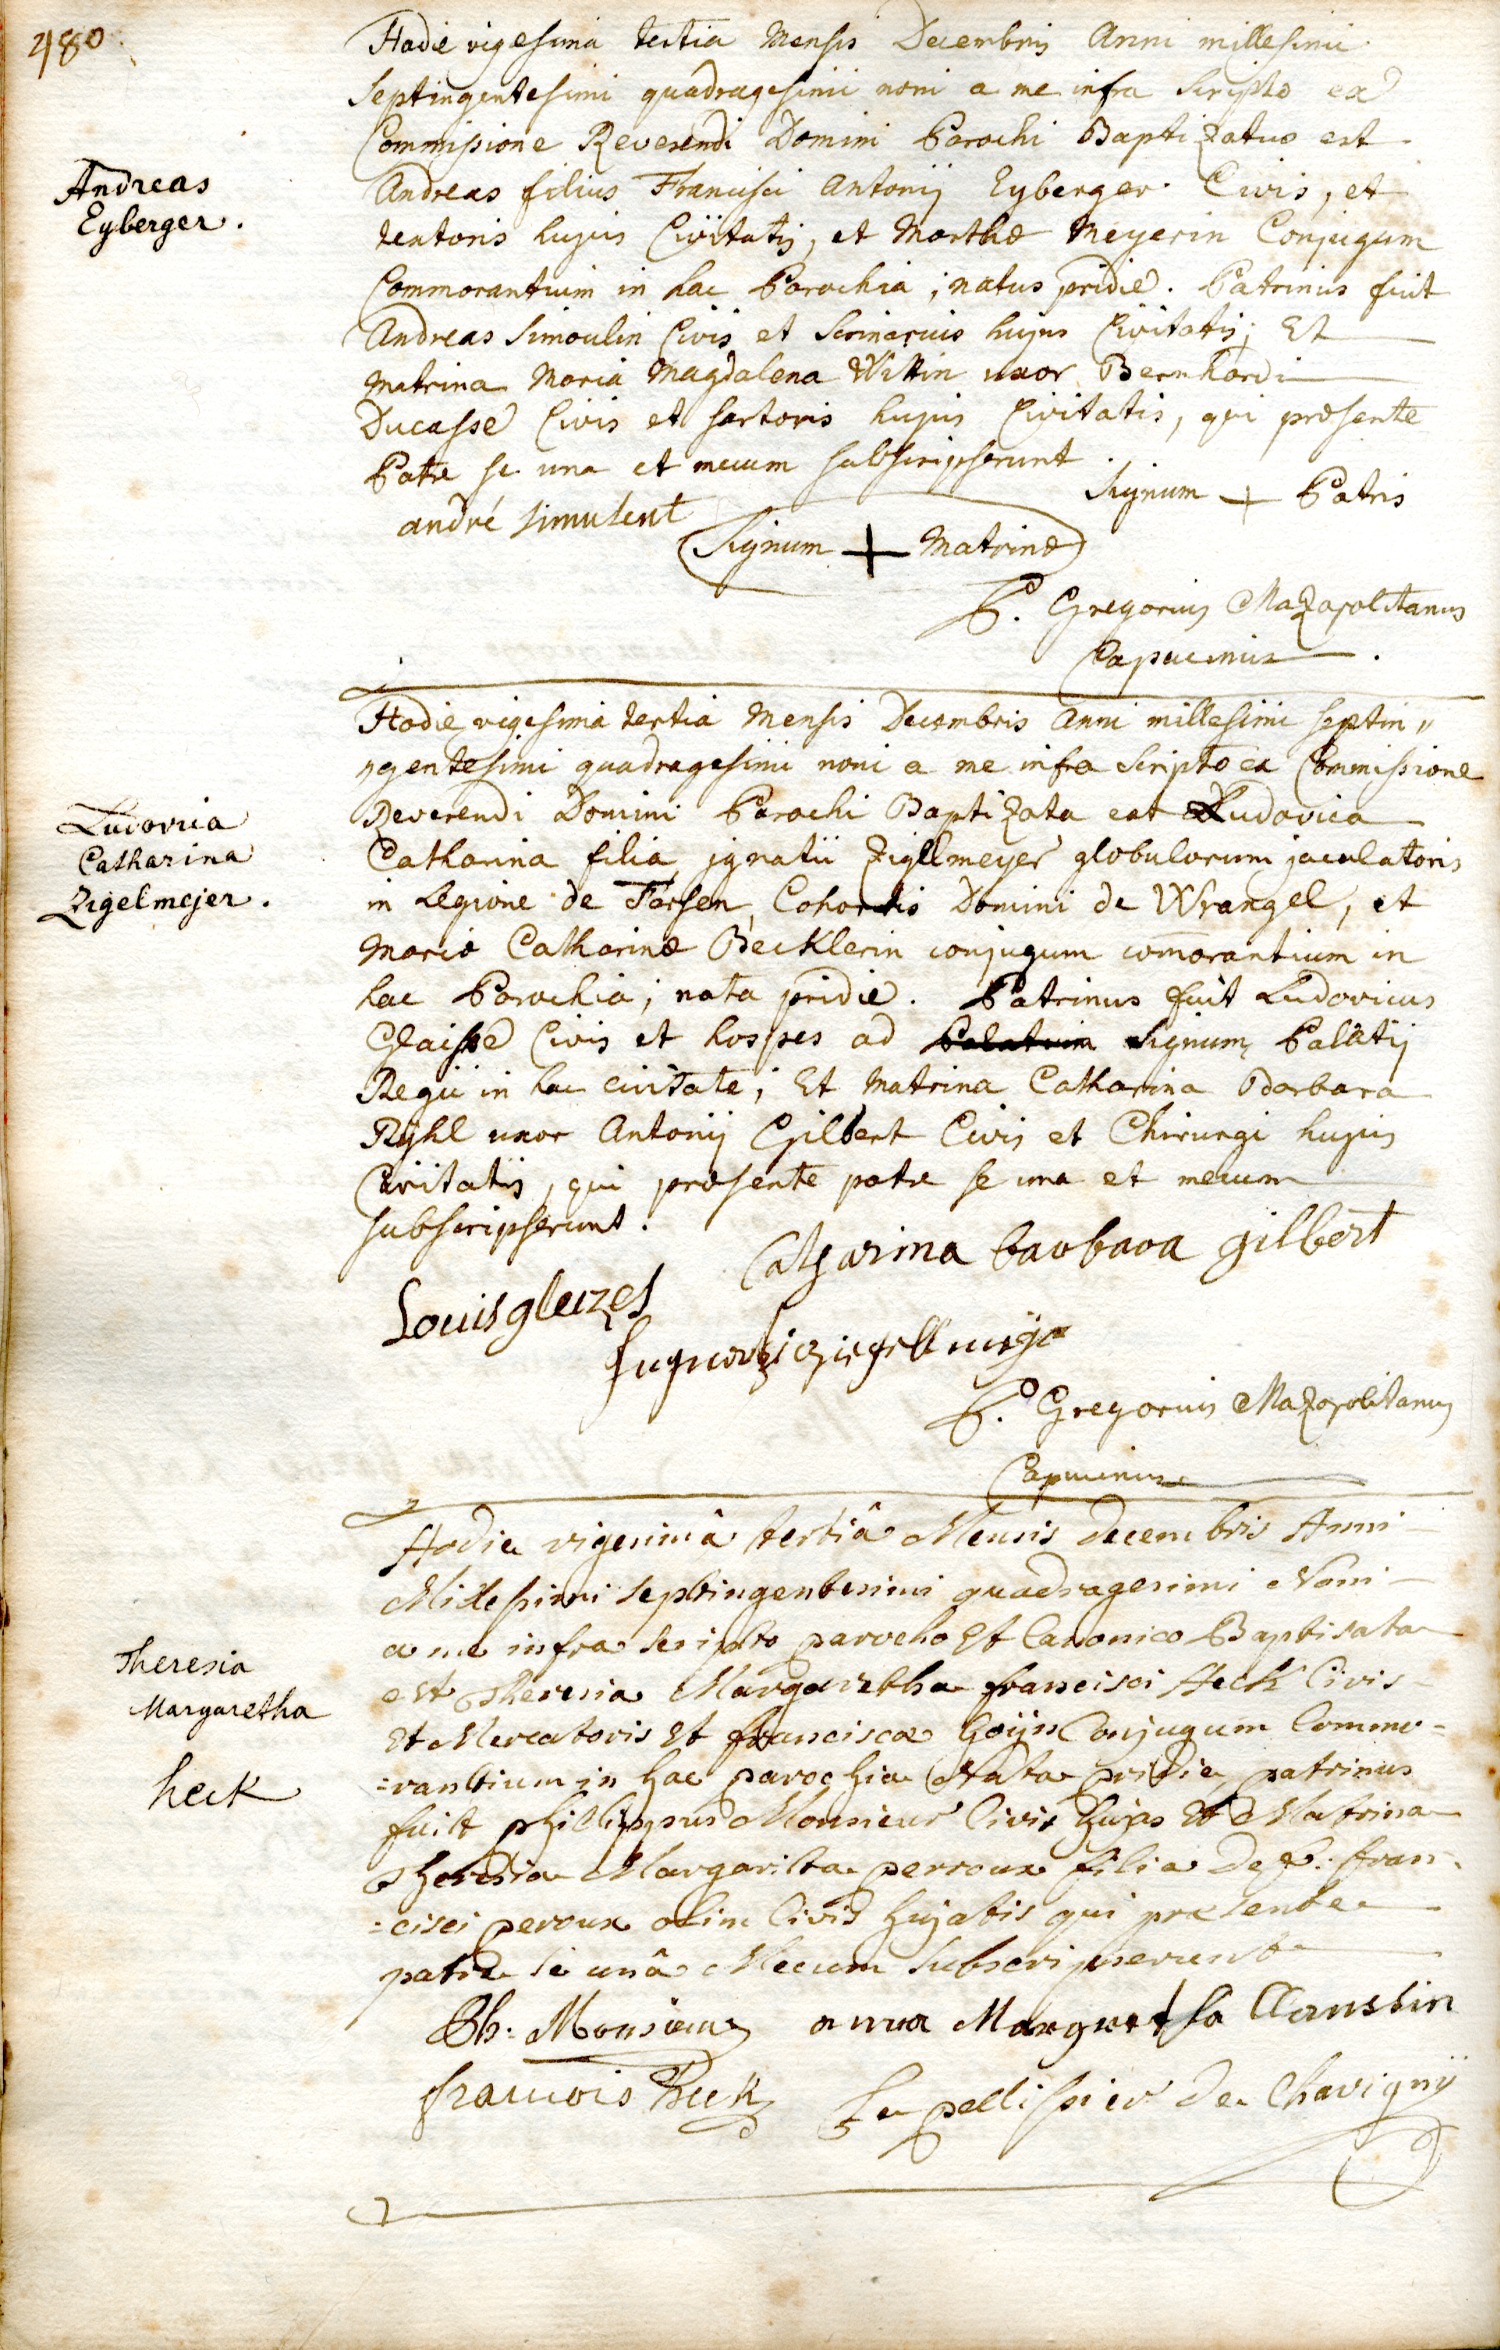 480.
Hodie vigesima tertia Mensis Decembris Anni millesimi
Septingentesimi quadragesimi noni a me infra Scripto ex
Commissione Reverendi Domini Parochi Baptizatus est
Andreas
Eyberger.
Andreas filius Francisci Antonij Eyberger Civis, et
textoris hujus Civitatis, et Marthæ Meyerin Conjugum
Commorantium in hac Parochia; natus pridie. Patrinus fuit
Andreas Simoulin Civis et Scrinarius hujus Civitatis; Et
Matrina Maria Magdalena Wittin uxor Bernhardi
Ducasse Civis et sartoris hujus Civitatis, qui præsente
Patre se una et mecum subscripserunt.
Signum + Patris
andré simulent
Signum + Matrinæ
P. Gregorius Mazopolitanus
Capucinus.
Hodie vigesima tertia Mensis Decembris Anni millesimi septin"
ngentesimi quadragesimi noni a me infra Scripto ex Commissione
Reverendi Domini Parochi Baptizata est Ludovica
Ludovica
Catharina
Zigelmejer.
Catharina filia jgnatii Zigllmeyer globulorum jaculatoris
in Legione de Fersen, Cohortis Domini de Wrangel, et
Mariæ Catharinæ Becklerin conjugum com̄orantium in
hac Parochia; nata pridie. Patrinus fuit Ludovicus
Glaisse Civis et hospes ad Palatium Signum Palatij
Regii in hac civitate; Et Matrina Catharina Barbara
Ryhl uxor Antonij Gilbert Civis et Chirurgi hujus
Civitatis, qui præsente patre se una et mecum
subscripserunt.
Catharina barbara gilbert
Louis gleizes
P. Gregorius Mazopolitanus
Capucinus
Hodie vigesimâ tertiâ Mensis Decembris Anni
Millesimi septingentesimi quadragesimi Noni
a me infra scripto parocho Et Canonico Baptisata
Theresia
Margaretha
heck
est Theresia Margaretha francisci Heck Civis
Et Mercatoris Et franciscæ Goijn Conjugum Commo=
=rantium in hac parochia Nata pridie patrinus
fuit phillippus Monsieur Civis hujas Et Matrina
Theresia Margarita perroux filia def: fran=
=cisci peroux olim Civis hujatis qui præsente
patre se unâ Mecum Subscripserunt
Ph: Monsieur anna Margretha Claussin
francois heck
Le pellissier De Chavigny